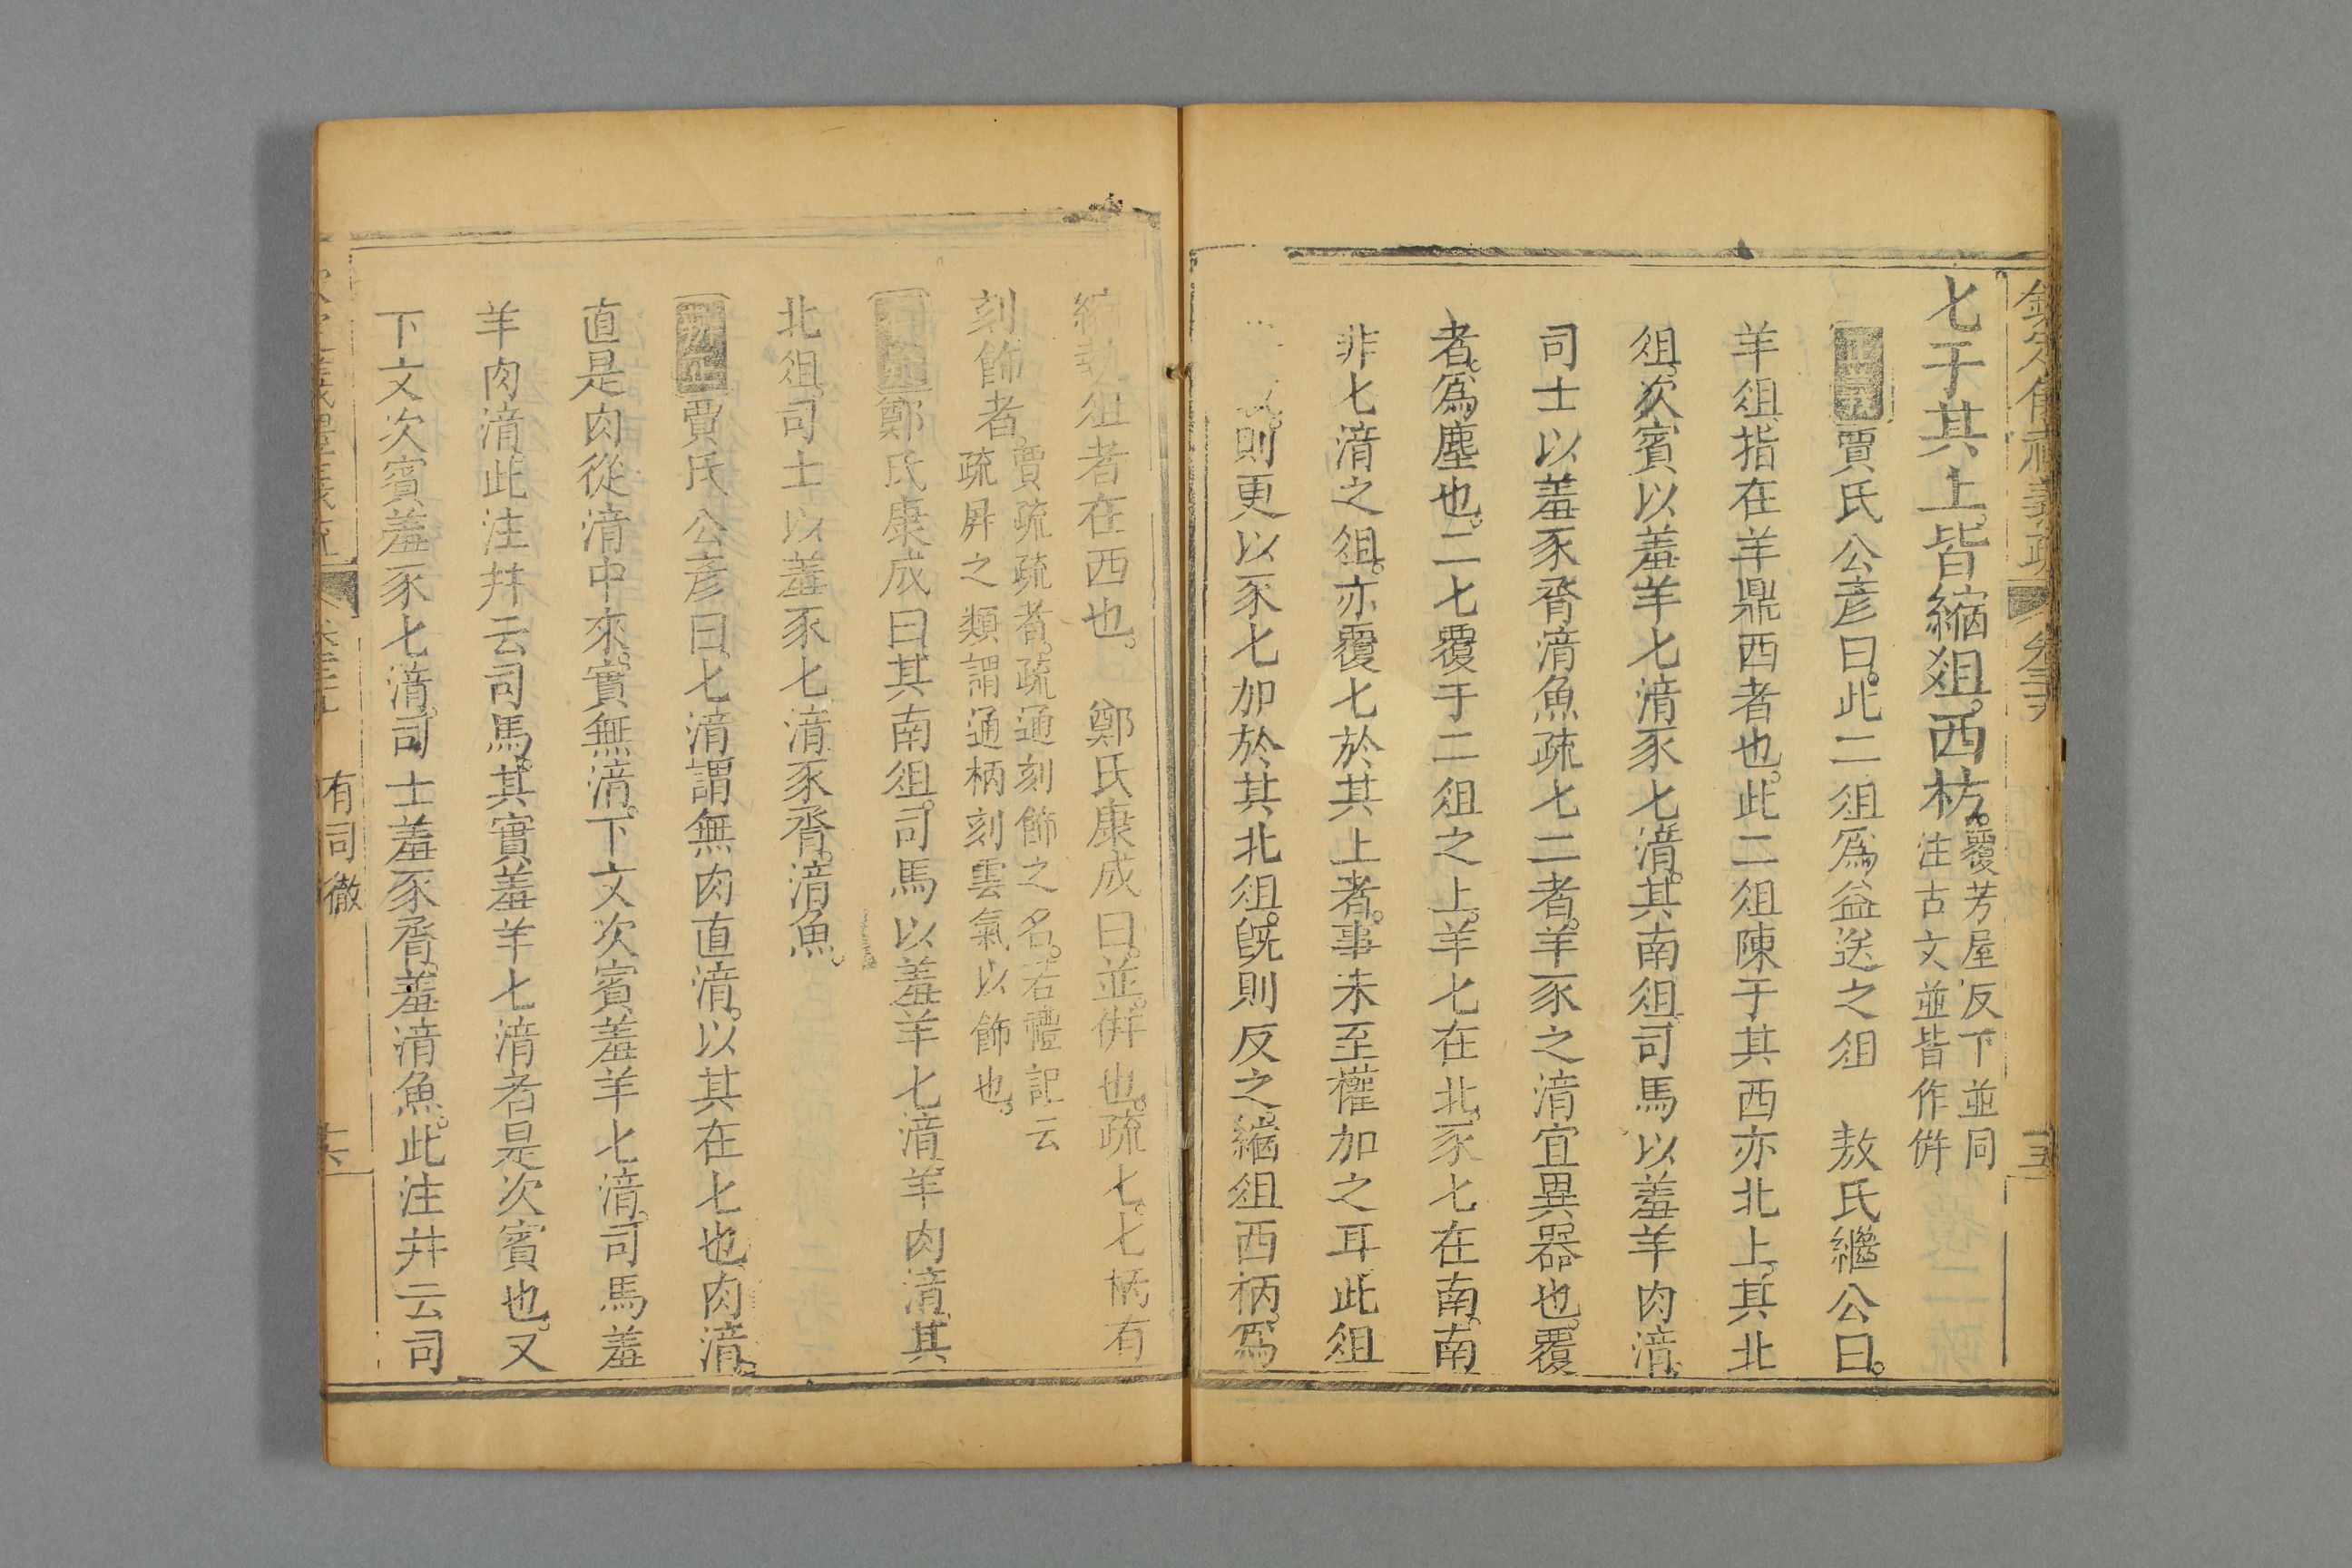 欽定儀禮義疏 卷三十九 五
匕于其上皆縮俎。西枋。覆芳屋反下並同
注古文並皆作併
正義 賈氏公彦曰。此二俎爲益送之俎 敖氏繼公曰。
羊俎指在羊鼎西者也。此二俎陳于其西亦北上。其北
俎。次賓以羞羊匕湇豕匕湇。其南俎司馬以羞羊肉湇。
司士以羞豕脀湇魚疏匕二者。羊豕之湇宜異器也。覆
者。爲塵也。二匕覆于二俎之上。羊匕在北。豕匕在南。南
非匕湇之俎。亦覆匕於其上者。事未至權加之耳此俎
則更以豕匕加於其北俎。旣則反之。縮俎西柄。爲
縮執俎者在西也。 鄭氏康成曰。並。併也。疏匕。匕柄有
刻飾者 賈疏疏者。疏通刻飾之名。若禮記云
疏屛之類謂通柄刻雲氣以飾也。
鄭氏康成曰其南俎。司馬以羞羊匕湇羊肉湇。其
北俎。司士以羞豕匕湇豕脀。湇魚。
賈氏公彦曰匕湇謂無肉直湇。以其在匕也肉湇。
直是肉從湇中來。實無湇。下文次賓羞羊匕湇。司馬羞
羊肉湇。此注幷云司馬。其實羞羊匕湇者是次賓也。又
下文次賓羞豕匕湇。司士羞豕脀。羞湇魚。此注幷云司
有司徹